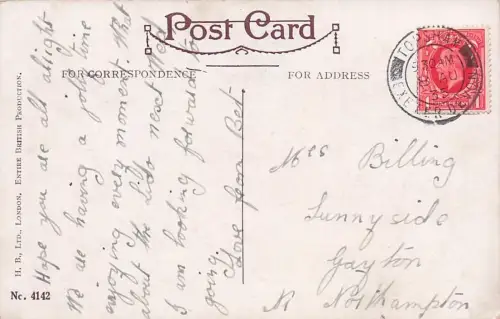 Post Card
FOR CORRESPONDENCE
FOR ADDRESS
Hope you are all alright
We are having a jolly time
enjoying every moment. What
about the Lido next Wed
I am looking forward to
going.
Love from Bet
Mrs Billing
Sunnyside
Gayton
Nr Northampton
TOPSHAM
EXETER DEVON
H. B., LTD., LONDON. ENTIRE BRITISH PRODUCTION.
No. 4142